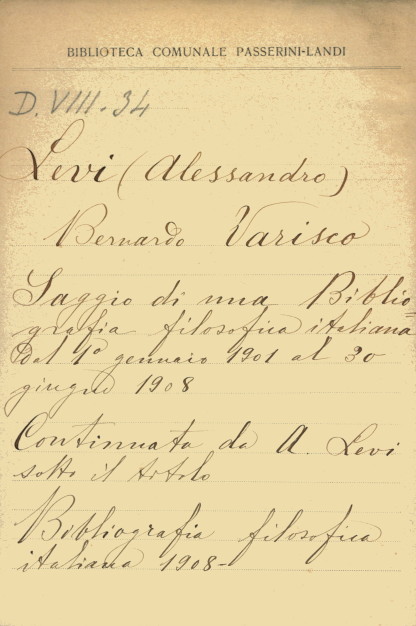 BIBLIOTECA COMUNALE PASSERINI-LANDI
D. VIII. 34
Levi (Alessandro)
Bernardo Varisco
Saggio di una Biblio=
grafia filosofica italiana
dal 1° gennaio 1901 al 30
giugno 1908
Continuata da A. Levi
sotto il titolo
Bibliografia filosofica
italiana 1908-